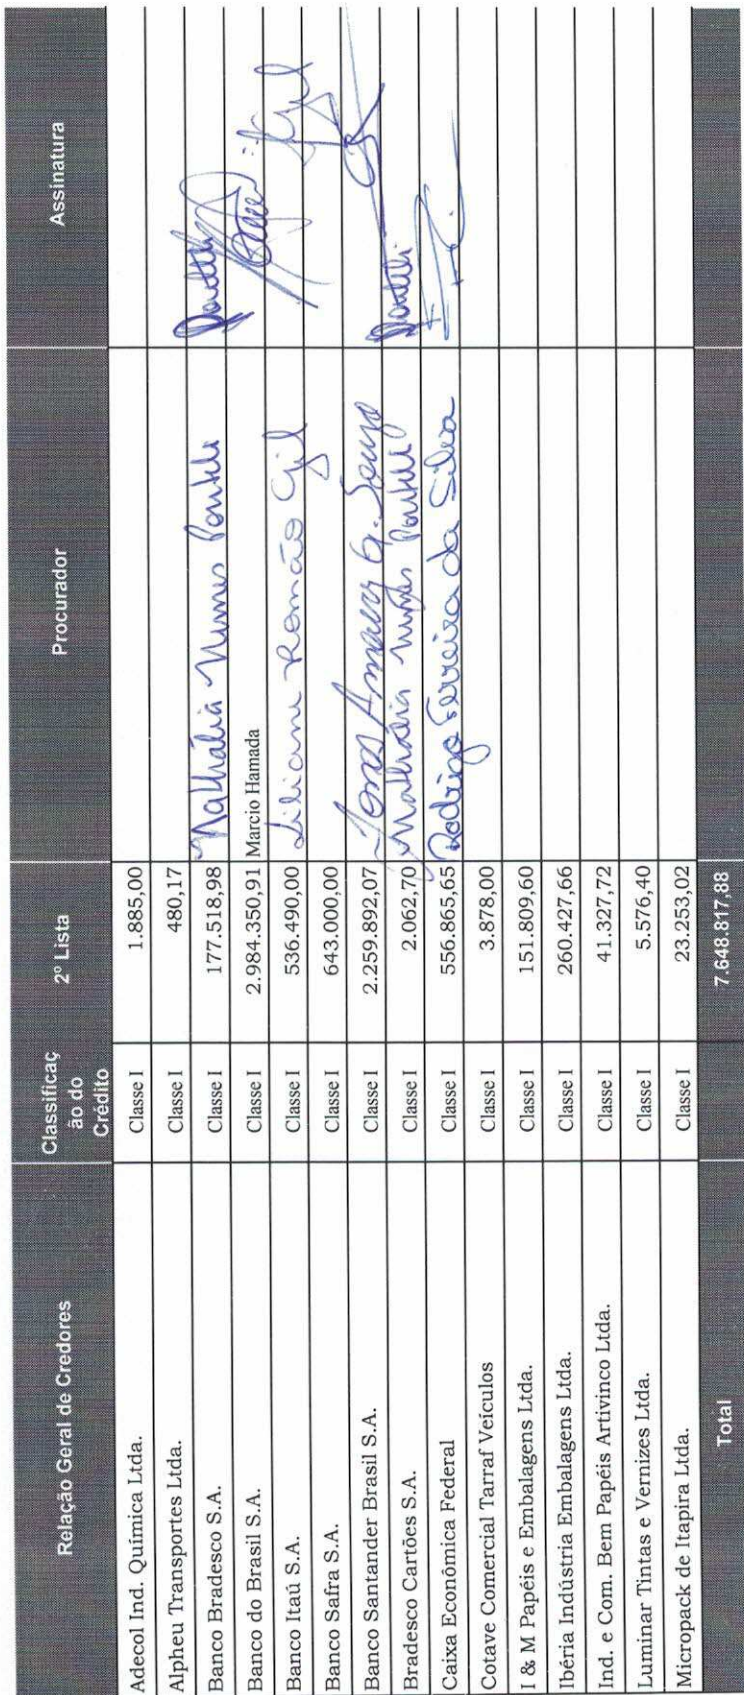 Relação Geral de Credores Classificaç ão do Crédito 2º Lista Procurador Assinatura
Adecol Ind. Química Ltda. Classe I 1.885,00
Alpheu Transportes Ltda. Classe I 480,17
Banco Bradesco S.A. Classe I 177.518,98 Nathália Nunes
Banco do Brasil S.A. Classe I 2.984.350,91 Marcio Hamada
Banco Itaú S.A. Classe I 536.490,00 Liliane Romão Gil
Banco Safra S.A. Classe I 643.000,00
Banco Santander Brasil S.A. Classe I 2.259.892,07 Amaury G. Souza
Bradesco Cartões S.A. Classe I 2.062,70 Nathália Nunes
Caixa Econômica Federal Classe I 556.865,65 Rodrigo Ferreira da Silva
Cotave Comercial Tarraf Veículos Classe I 3.878,00
I & M Papéis e Embalagens Ltda. Classe I 151.809,60
Ibéria Indústria Embalagens Ltda. Classe I 260.427,66
Ind. e Com. Bem Papéis Artivinco Ltda. Classe I 41.327,72
Luminar Tintas e Vernizes Ltda. Classe I 5.576,40
Micropack de Itapira Ltda. Classe I 23.253,02
Total 7.648.817,88